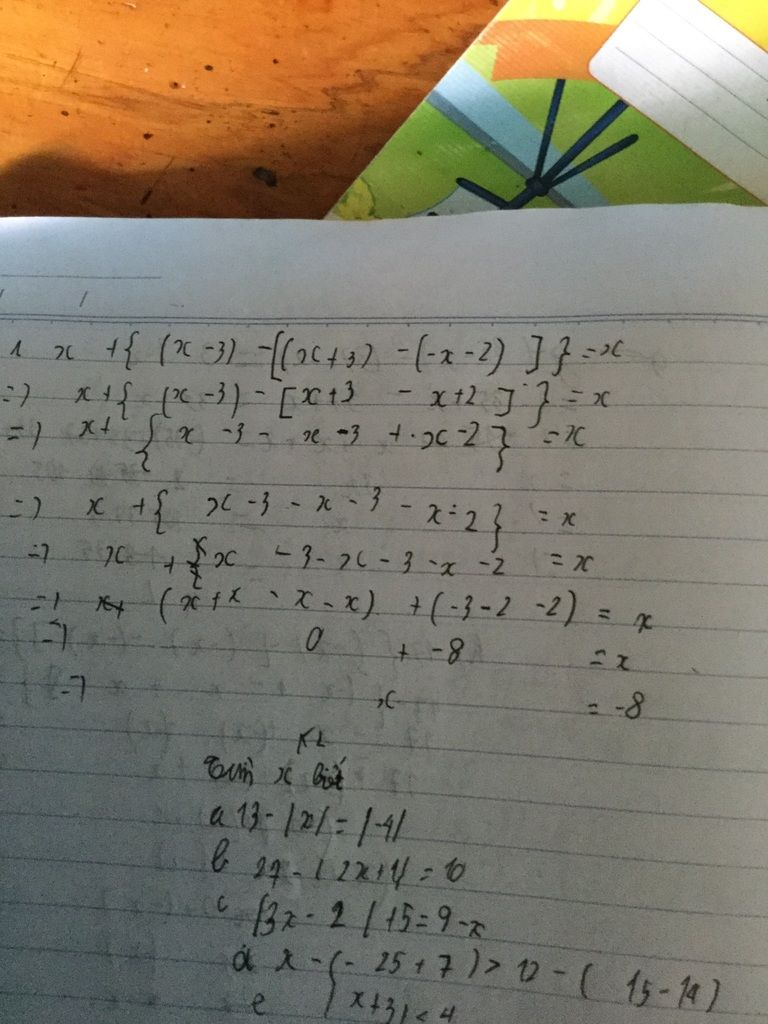 1 x + { (x - 3) - [(x + 3) - (-x - 2) ] } = x
=> x + { (x - 3) - [ x + 3 - x + 2 ] } = x
=> x + { x - 3 - x - 3 + x - 2 } = x
=> x + { x - 3 - x - 3 - x - 2 } = x
=> x + { x - 3 - x - 3 - x - 2 = x
=> (x + x - x - x) + (-3 - 2 - 2) = x
=> 0 + -8 = x
=> x = -8
KL
Tìm x biết
a 13 - |x| = |-4|
b 27 - | 2x + 1| = 10
c |3x - 2 | + 5 = 9 - x
d x - (- 25 + 7 ) > 12 - ( 15 - 14)
e | x + 3 | < 4